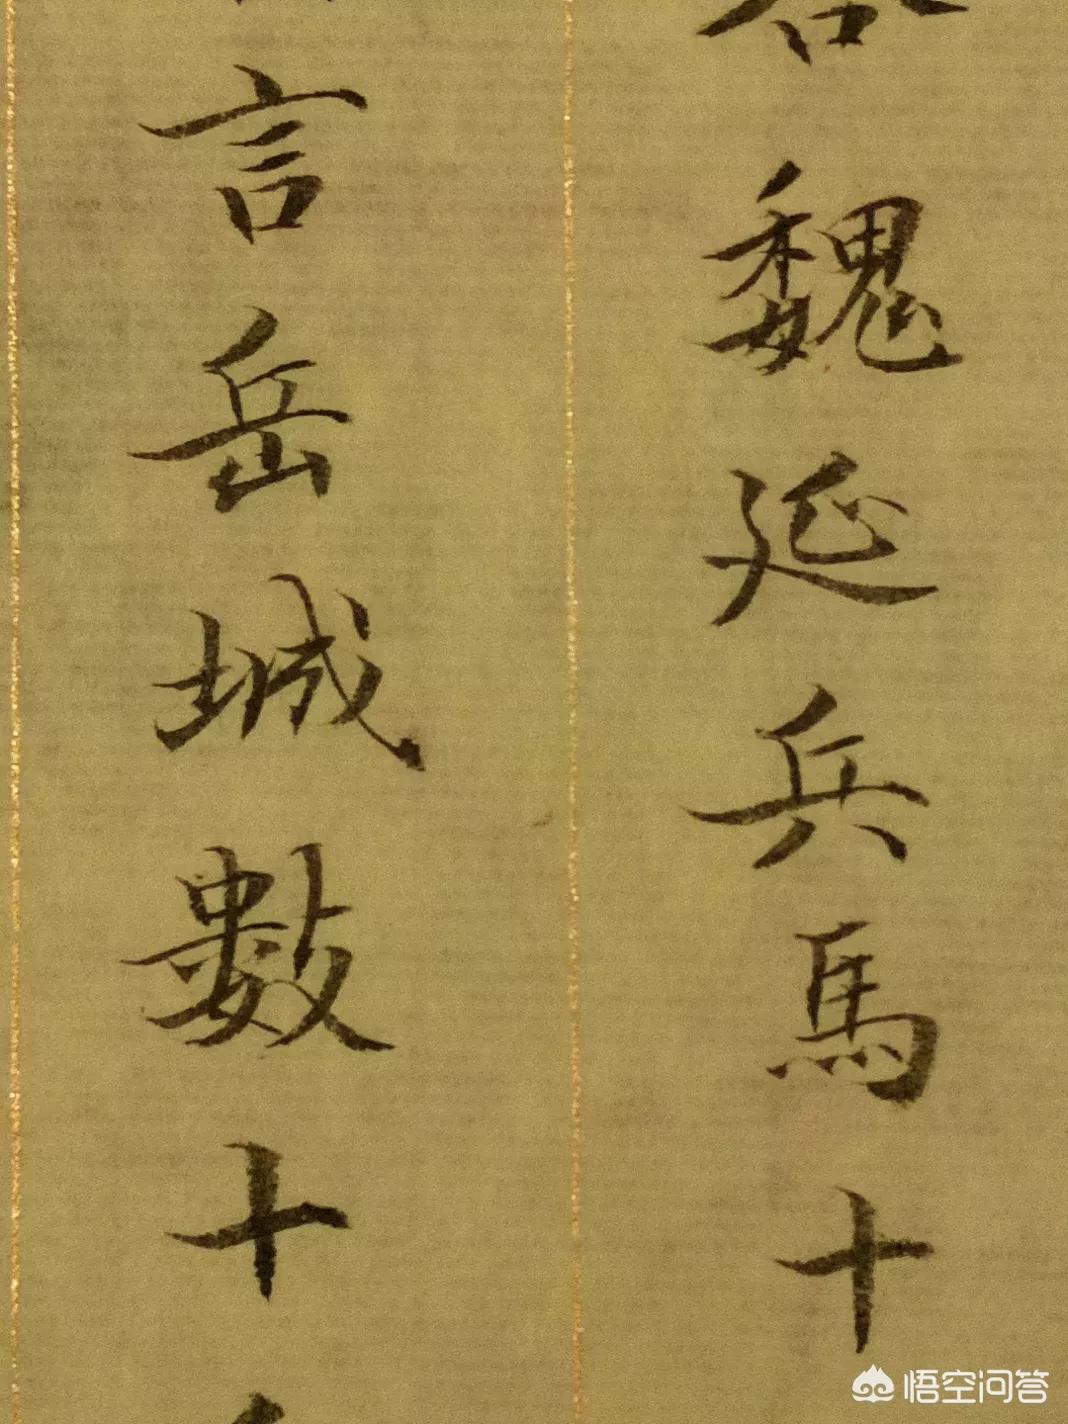 魏延兵馬十
言岳城數十
悟空问答